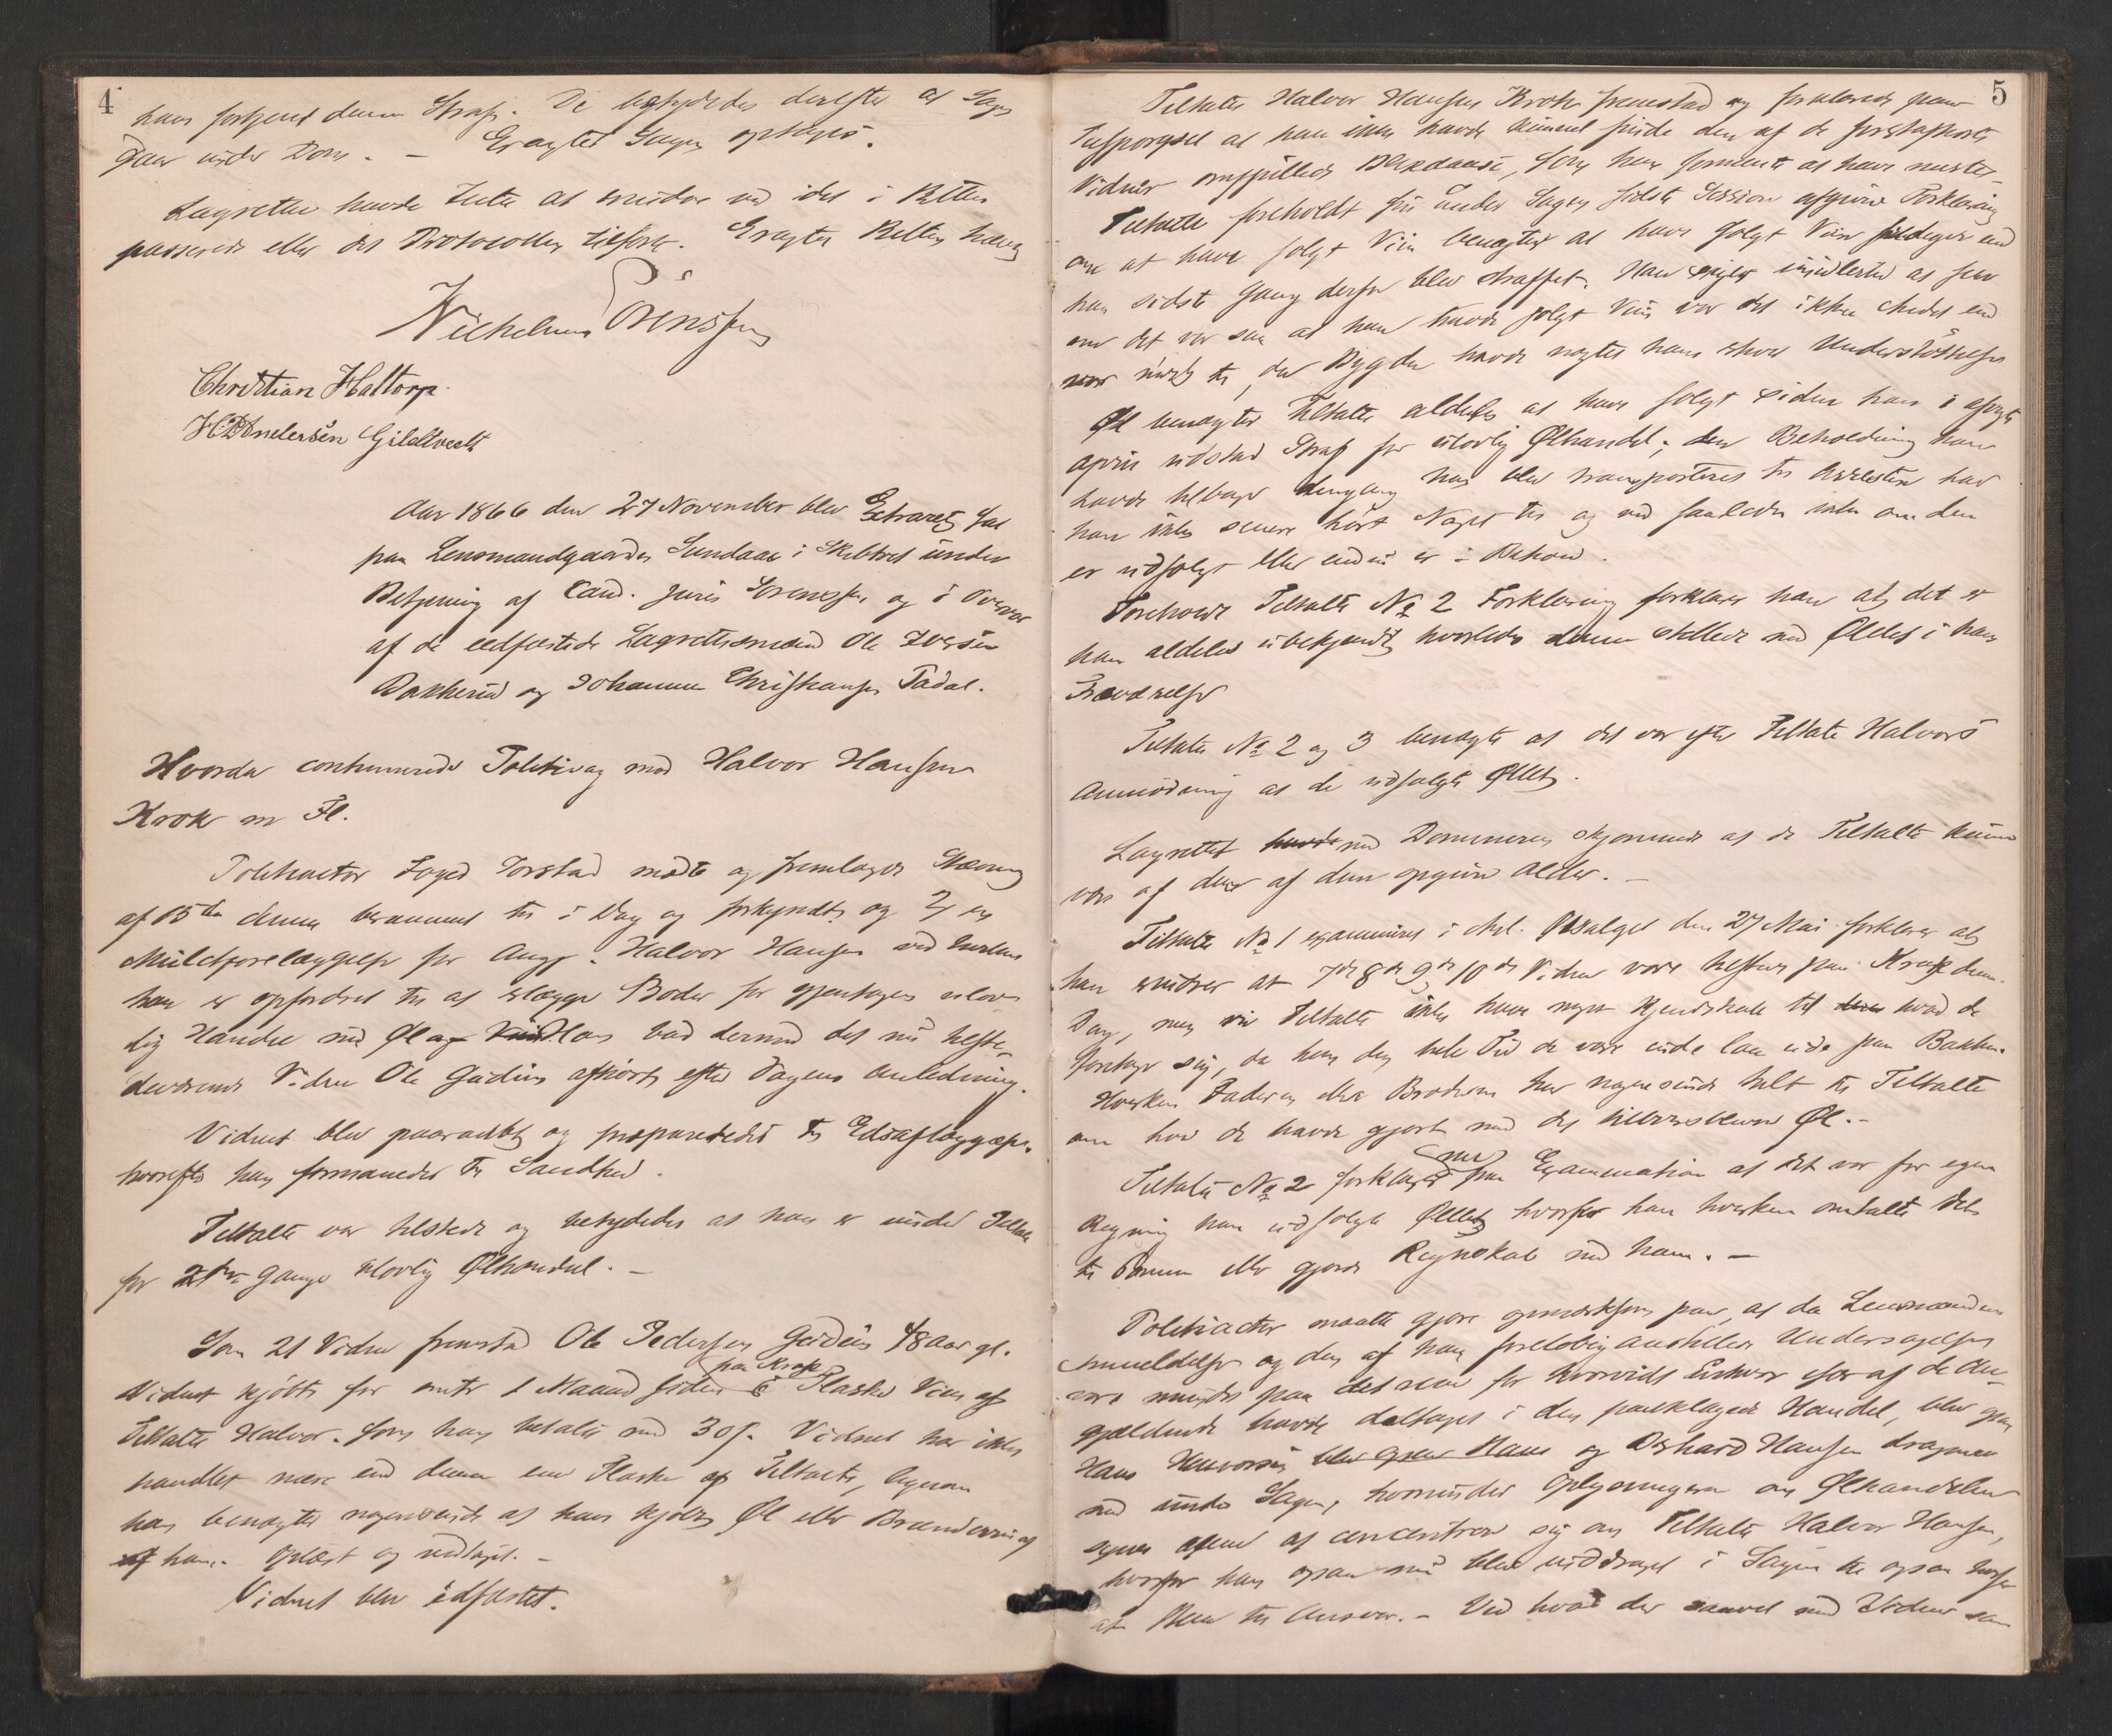 4
han fortjent denne Straf. De betydedes derefter at Sagen
gaar under Dom. — Eragtet Sagen optages.
Lagrettet havde Intet at erindre ved det i Retten
passerede eller det Protocollen tilførte. Eragtet Retten hævet
Christian Haltorp
Andersen Gildtvedt
Aar 1866 den 27 November blev Extraret sat
paa Lensmandgaarden Sundaas i Skibtvet under
Betjening af Cand. juris Sörensen og i Overvær
af de eedfæstede Lagrettesmænd Ole Iversen
Bakkerud og Johannes Christiansen
Hvorda continuerede Politisag mod Halvor Hansen
Krok m Fl.
Politiactor Foged Torstad mødte og fremlagde Stævning
af 15de denne berammet til i Dag og forkyndt og
Mulctforelæggelse for Angj. Halvor Hansen
han er opfordret til at erlægge Bøder for gjentagen ulov-
lig Handel med Øl bad dermed det nu tilste-
deværende Vidne Ole Gudim afhørt efter Dagens Anledning.
Vidnet blev paaraabt og præpareredes til Edsaflæggelse
hvorefter han formanedes til Sandhed.
Tiltalte var tilstede og betydedes at han er under Tiltale
for Gange ulovlig Ølhandel. —
Som 21 Vidne fremstod Ole Pedersen Gudim 48 Aar gl.
paa Krok
Vidnet kjøbte for omtr 1 Maaned siden Flaske Viin af
Tiltalte Halvor, som han betalte med 30 s. Vidnet har ikke
handlet mere end denne ene Flaske af Tiltalte, ligesom
han benægter nogensinde at have kjøbt Øl eller Brændeviin af
af ham. Oplæst og vedtaget. —
Vidnet blev edfæstet.
5
Tiltalte Halvor Hansen Krok fremstod og forklarede paa
Tilspørgsel at han ikke havde kunnet finde den af de forrige afhørte
Vidner omspurgte Blikdaase, som han formente at have mistet
Tiltalte foreholdt sin under Sagens sidste Session afgivne Forklaring
om at have solgt Viin benægter at have solgt Viin sildigere end
han sidste Gang derfor blev straffet. Han siger imidlertid at selv
om det var saa at han havde solgt Viin var det ikke Andet end
var nødt til, da Bygden havde nægtet ham enhver Understøttelse
Øl benægter Tiltalte aldeles at have solgt siden han i afvigte
April udstod Straf for ulovlig Ølhandel; den Beholdning han
havde tilbage dengang han blev transporteret til Arresten har
han ikke senere hørt Noget til og ved saaledes ikke om den
er udsolgt eller endnu er i Behold.
Foreholdt Tiltalte No 2 Forklaring forklarer han at det er
ham aldeles ubekjendt hvorledes denne stillede med Øllet i hans
Fraværelse
Tiltalte No 2 og 3 benægte at det var efter Tiltalte Halvors
Anmodning at de udsolgte Øllet.
Lagrettet havde med Dommeren skjønnede at de Tiltalte kunne
være af den af dem opgivne Alder. —
Tiltalte No 1 examineret i Anl. Ølsalget den 27 Mai forklarer at
han erindrer at 7de 8de 9de 10de Vidner vare tilstede paa Krok denne
Dag, men vil Tiltalte ikke have noget Kjendskab til hvad de
foretoge sig, da han den hele Tid de vare inde laa ude paa Bakken.
Hverken Faderen eller Broderen har nogensinde talt til Tiltalte
om hvad de havde gjort med det tilbageblevne Øl. —
nu
Tiltalte No 2 forklarer paa Examination at det var for egen
Regning han udsolgte Øllet hvorfor han hverken omtalte det
til Sønnen eller gjorde Regnskab med ham. —
Politiactor maatte gjøre opmærksom paa, at da Lensmandens
Anmeldelse og den af ham foreløbig anstillede Undersøgelse
vare mindre paa det rene for hvorvidt Enhver især af de An-
gjældende havde deltaget i den paaklagede Handel, blev ogsaa
Hans Halvorsen blev ogsaa Hans og Ø Hansen dragne
ind under Sagen, hvorunder Oplysningerne om Ølhandelen
synes alene at concentrere sig om Tiltalte Halvor Hansen,
hvorfor han ogsaa nu blev inddraget i Sagen
at staa til Ansvar. — Ved hvad der saavel ved Vidner som